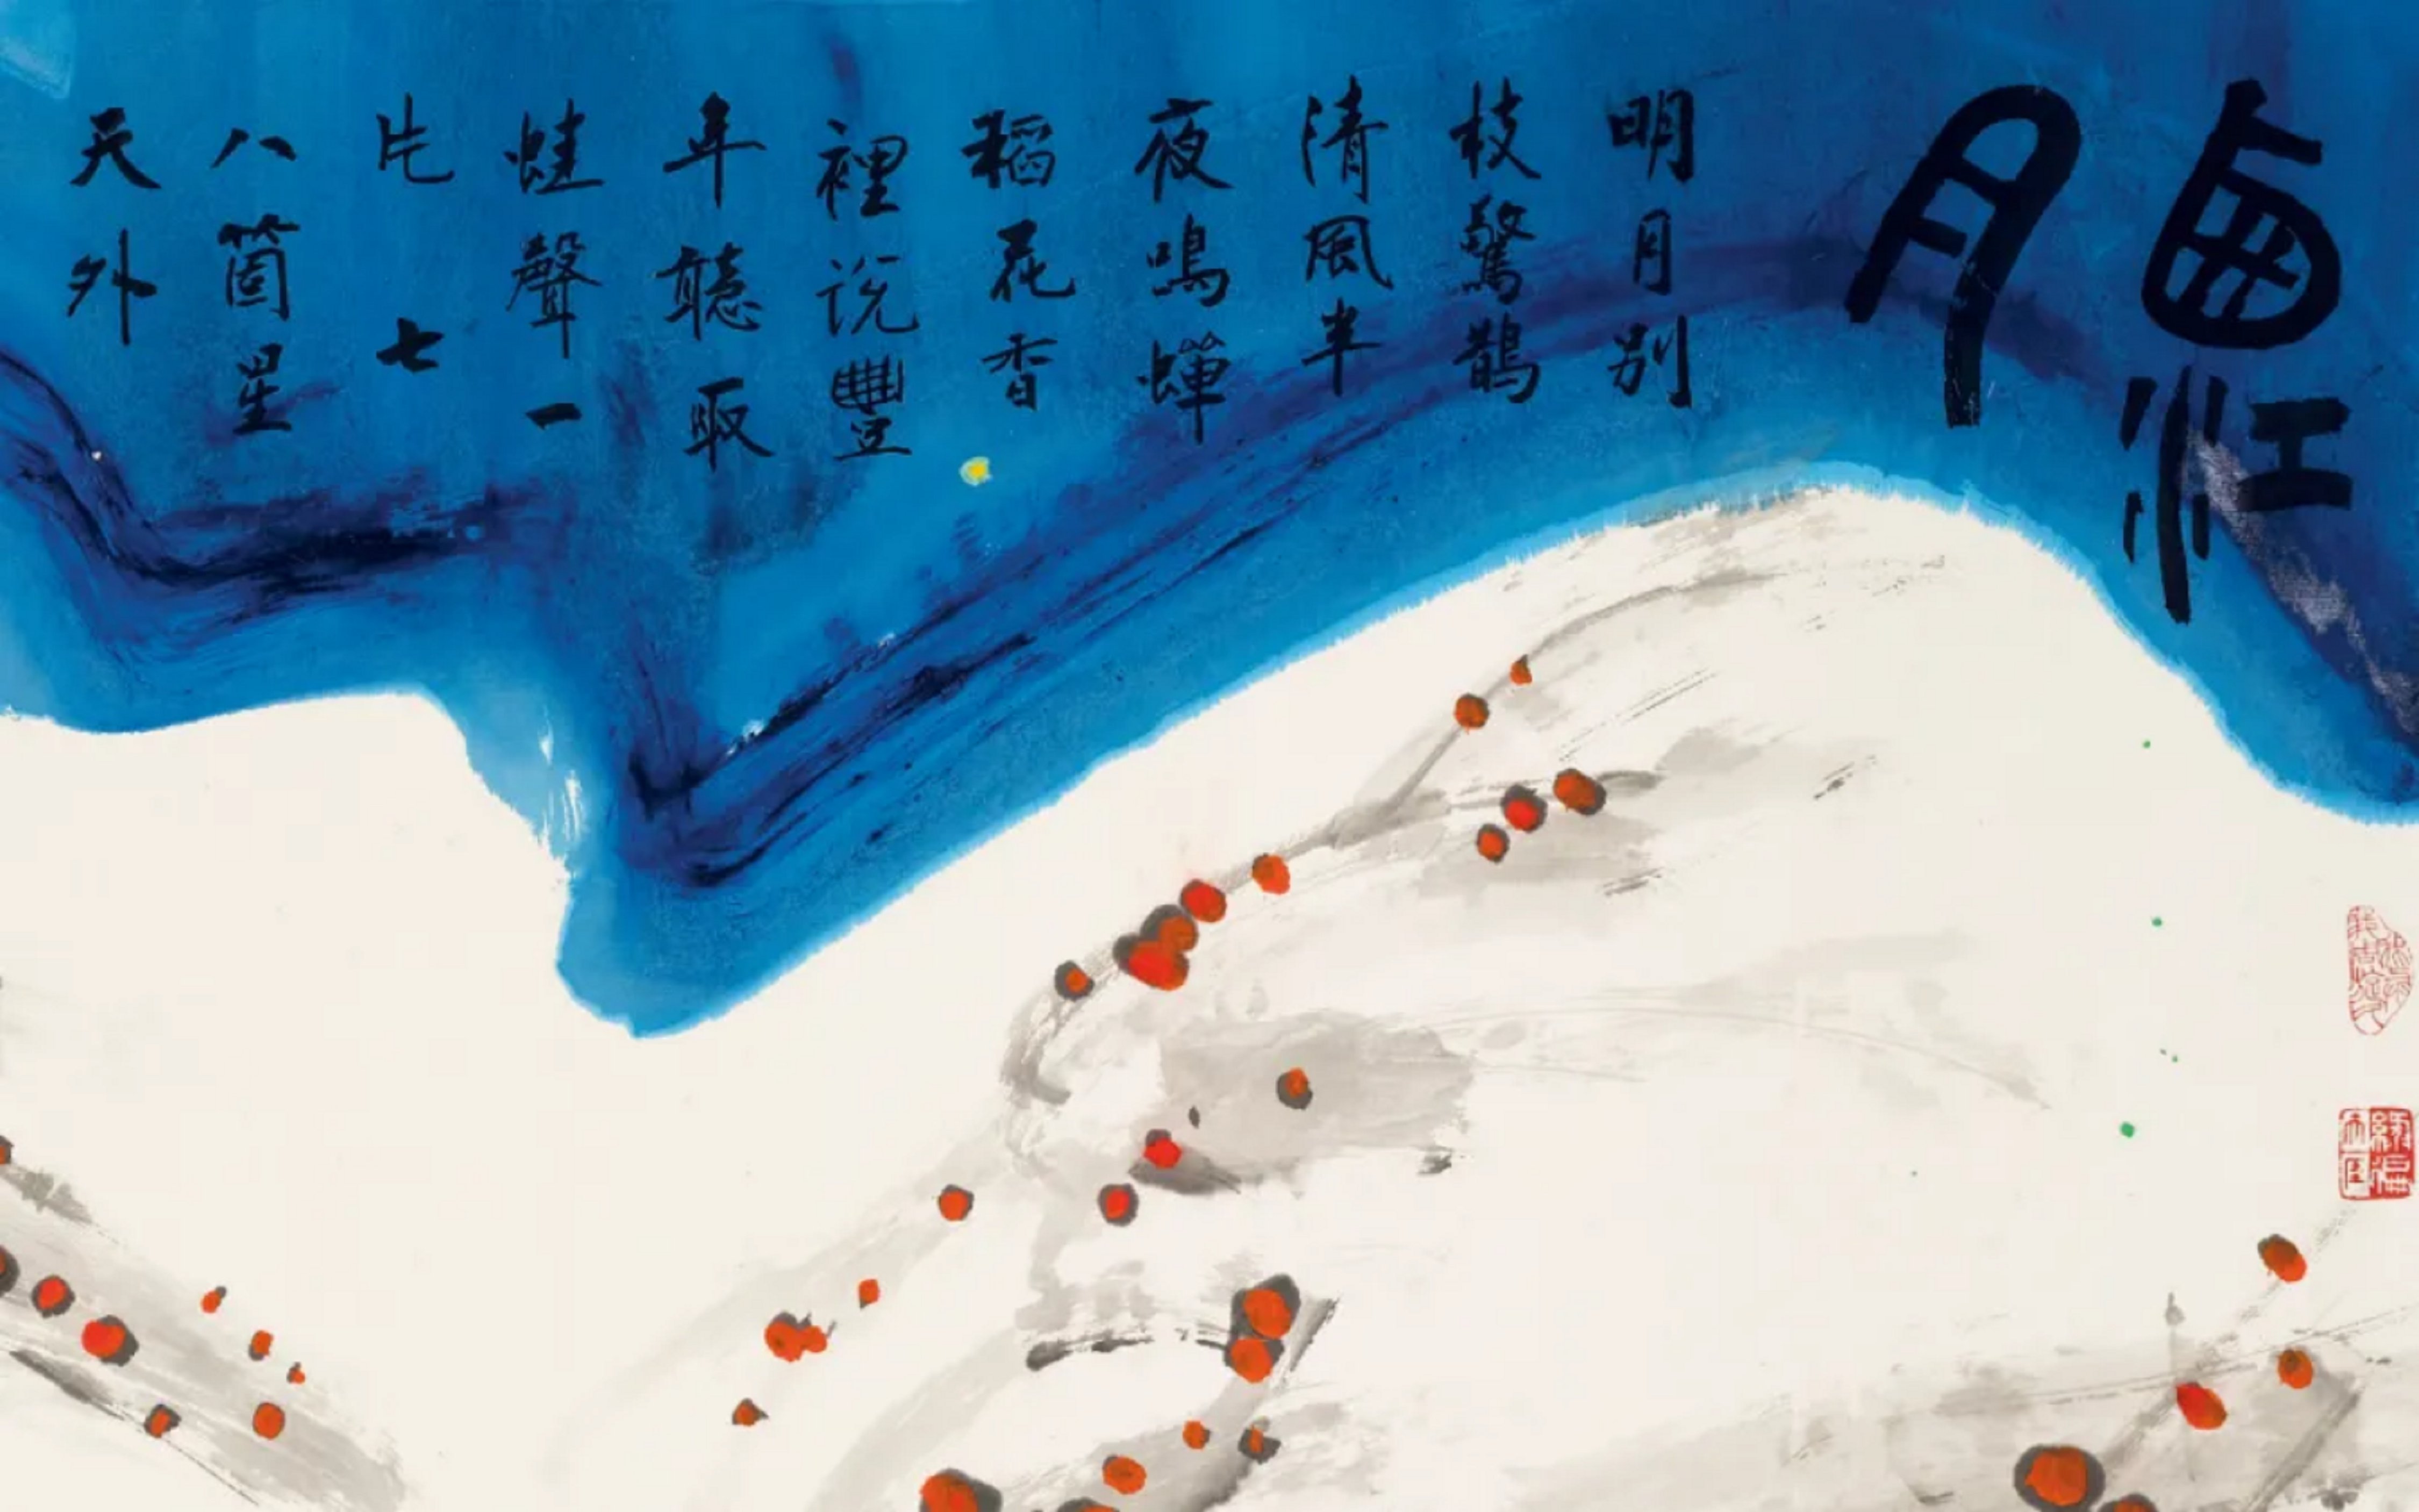 西江
月
明月别
枝驚鵲
清風半
夜鳴蟬
稻花香
裡説豐
年聽取
蛙聲一
片 七
八箇星
天外